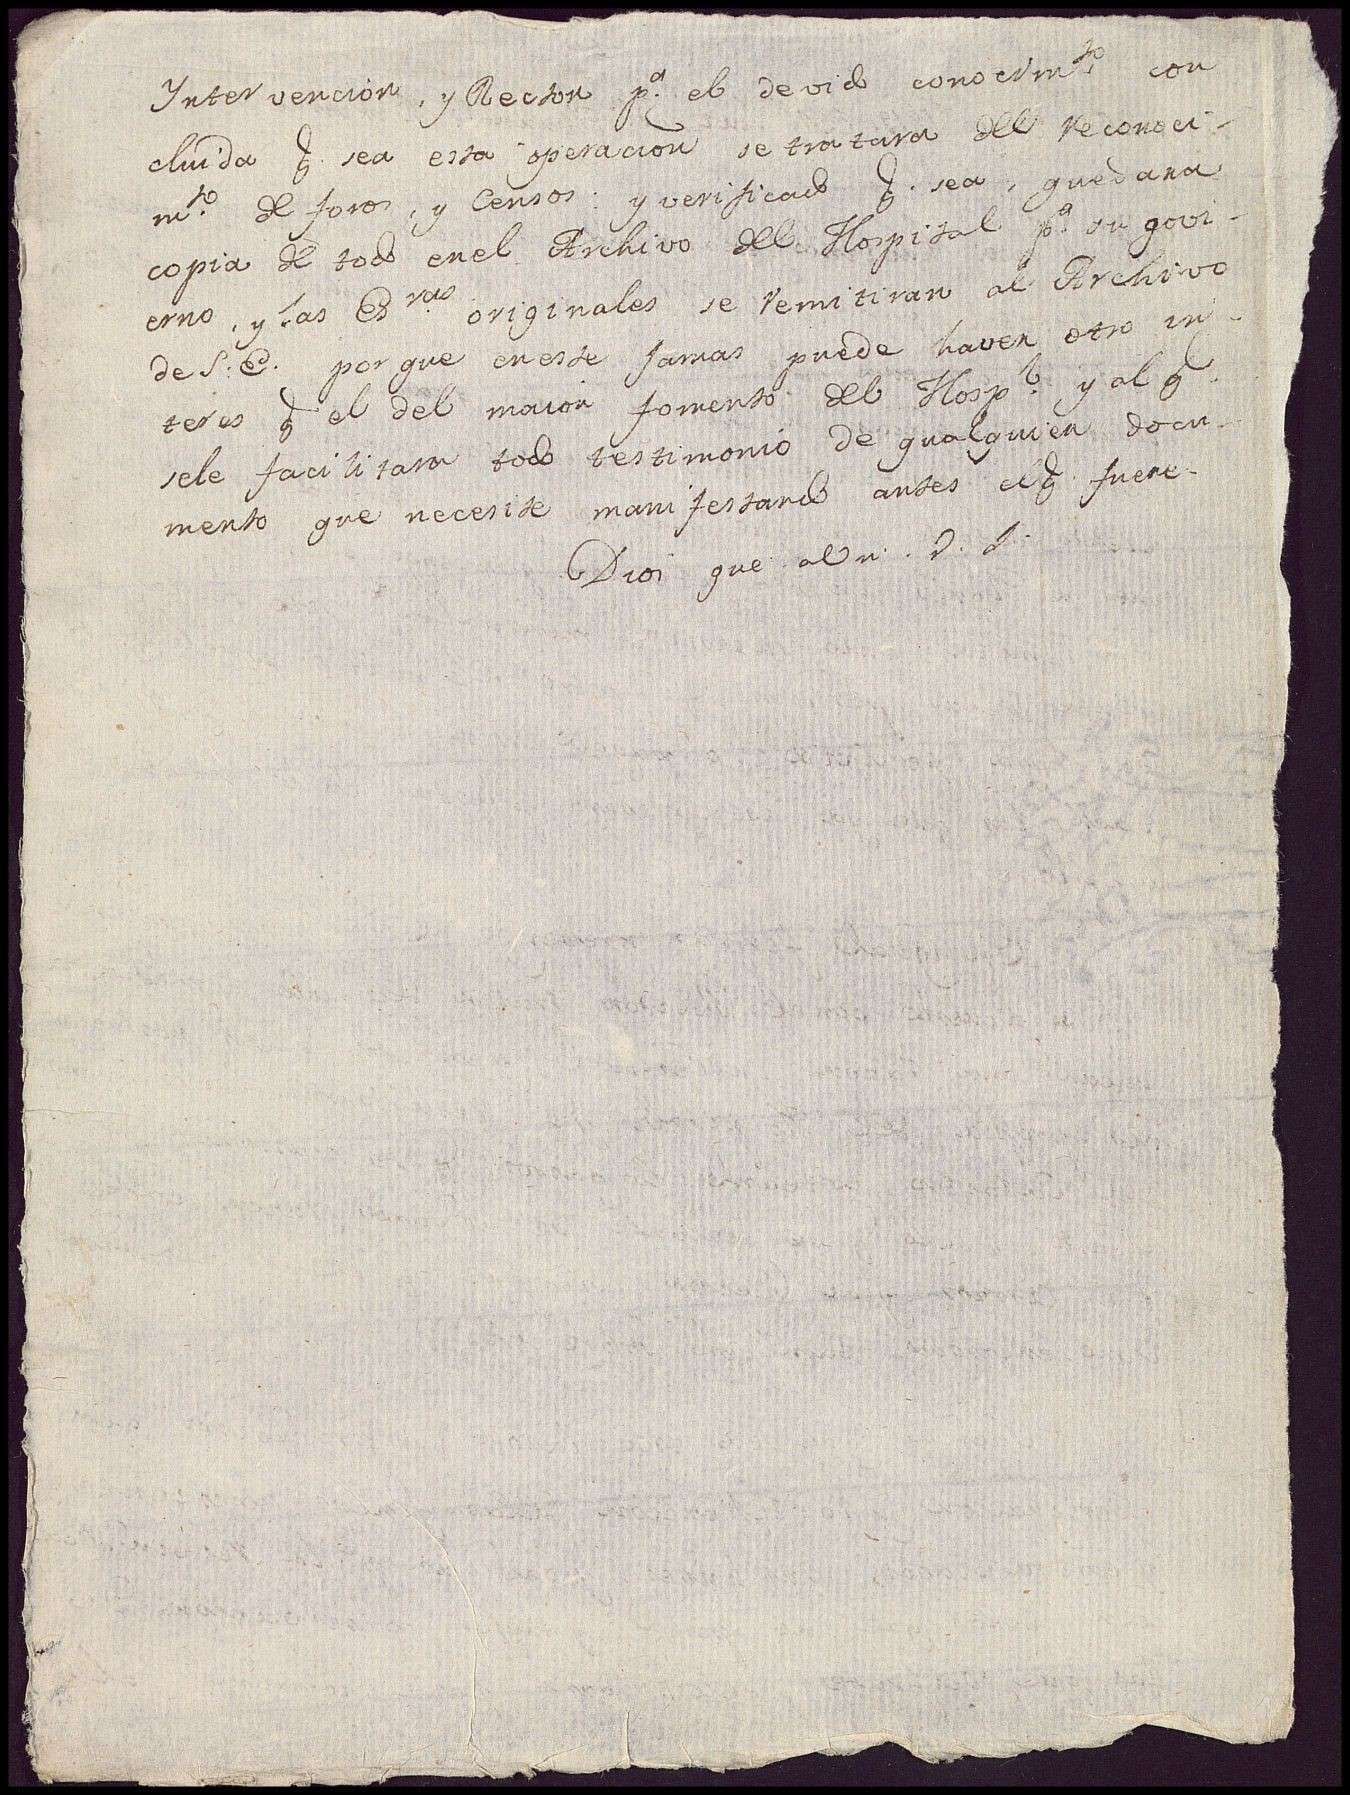 Intervencion, y Rector pª. el devido conocim.to con
cluida q. sea esta operacion se tratara del reconoci-
m.to de foros, y Censos: y verificado q. sea, quedara
copia de todo en el Archivo del Hospital pª. su govi-
erno, y las Es.ras originales se remitiran al Archivo
de S.E. porque en este jamas puede haver otro in-
teres q el del maior fomento del Hosp.l y al q
sele facilitara todo testimonio de qualquier docu-
mento que necesite manifestando antes el q fuere-
Dios gue a Vm.